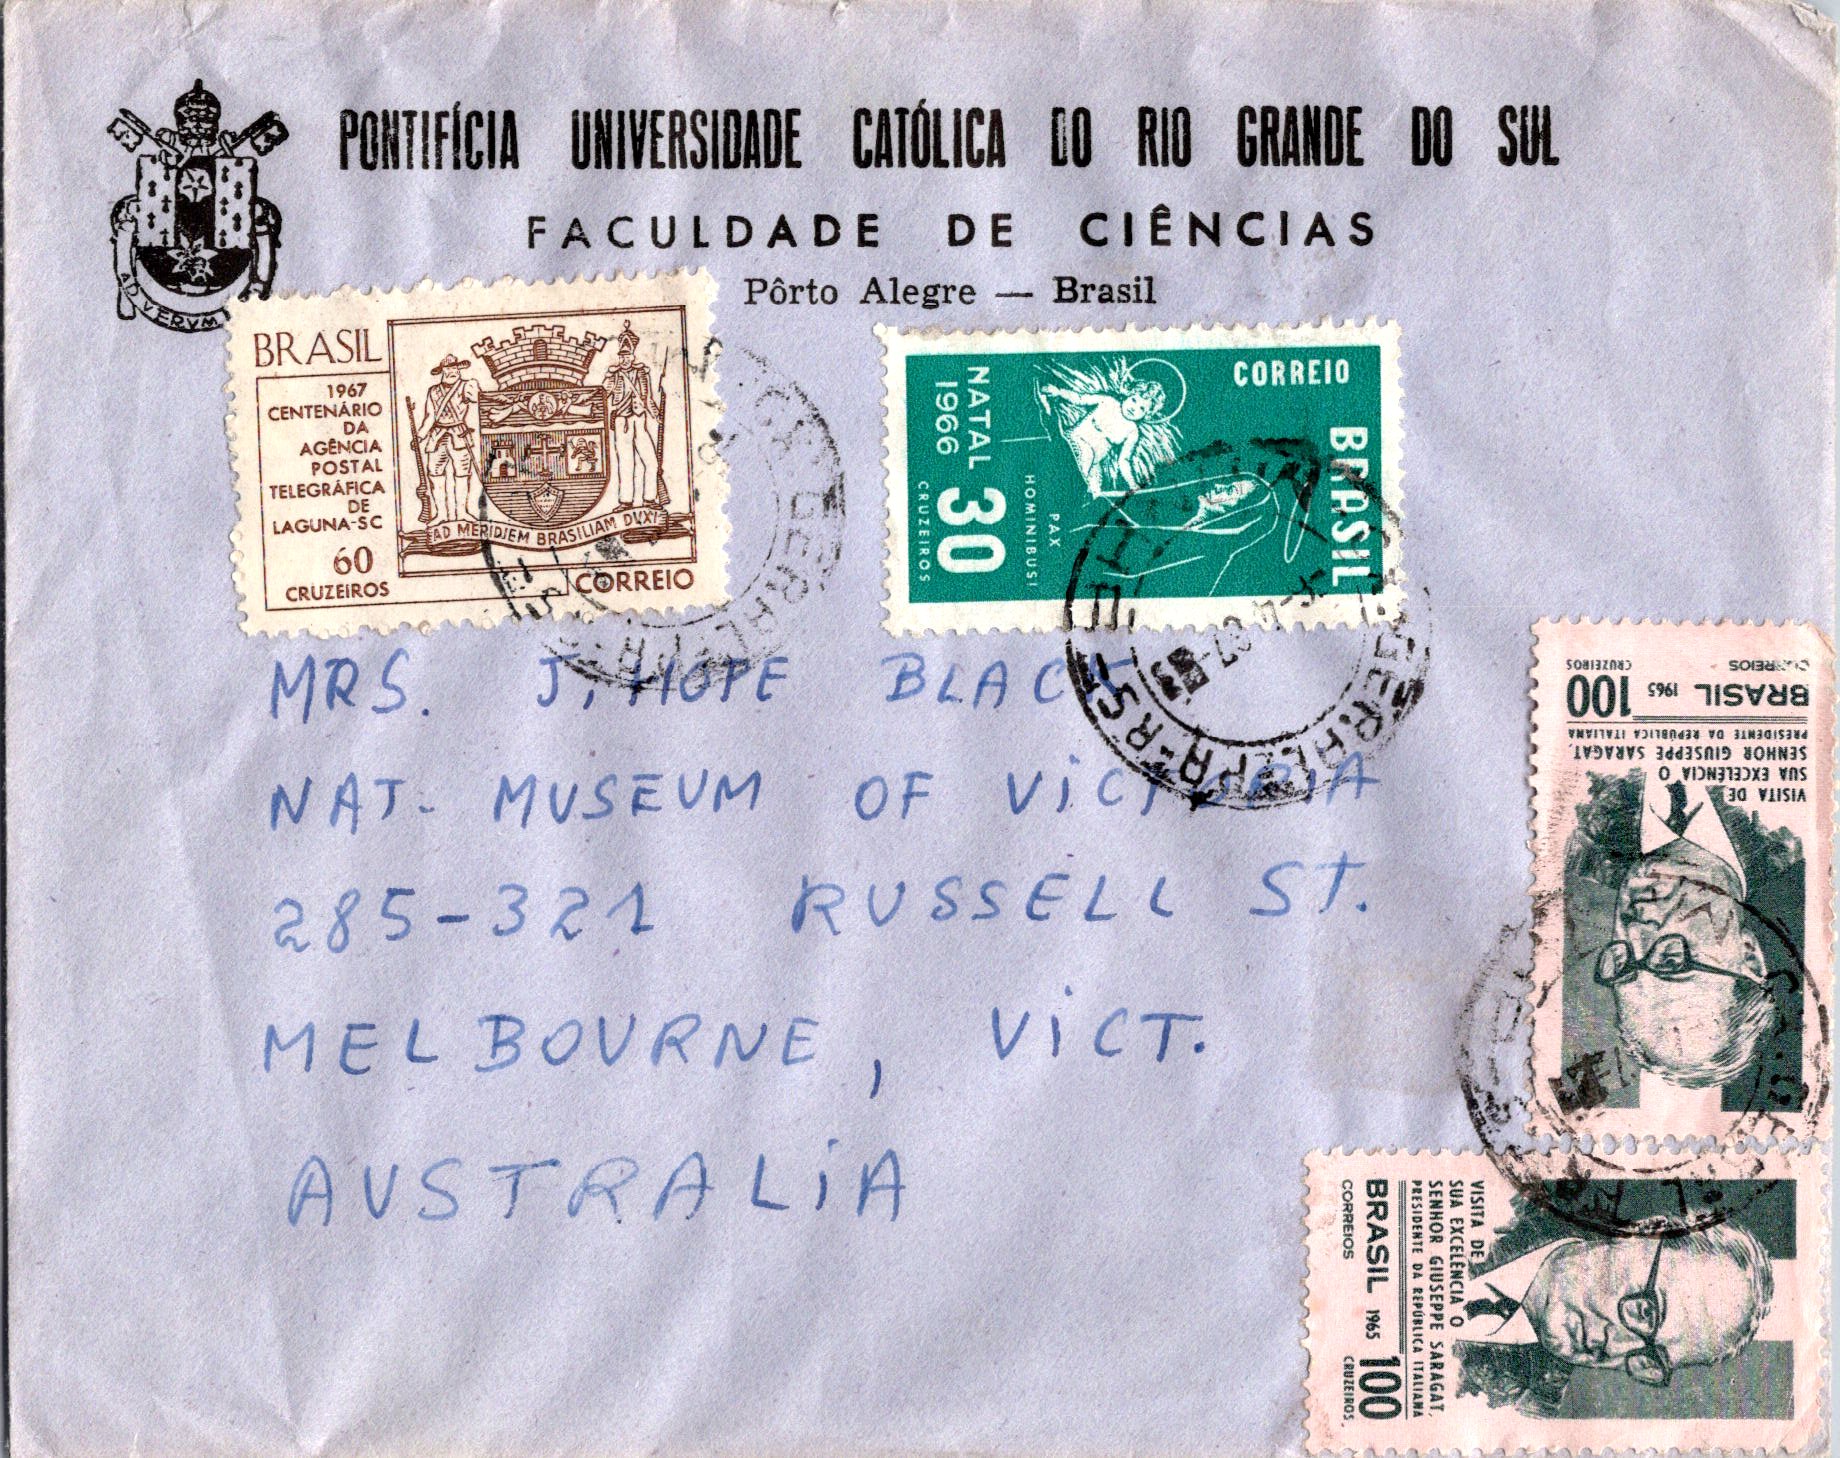 PONTIFÍCIA UNIVERSIDADE CATÓLICA DO RIO GRANDE DO SUL
FACULDADE DE CIÊNCIAS
Pôrto Alegre — Brasil
AD VERVM
BRASIL
1967
CENTENÁRIO
DA
AGÊNCIA
POSTAL
TELEGRÁFICA
DE
LAGUNA-SC
60
CRUZEIROS
AD MERIDJEM BRASILIAM DVXI
CORREIO
CORREIO
BRASIL
NATAL
1966
30
CRUZEIROS
PAX
HOMINIBUS
MRS. J. HOPE BLACK
NAT. MUSEUM OF VICTORIA
285-321 RUSSELL ST.
MELBOURNE, VICT.
AUSTRALIA
VISITA DE
SUA EXCELÊNCIA O
SENHOR GIUSEPPE SARAGAT,
PRESIDENTE DA REPÚBLICA ITALIANA
BRASIL 1965 100
CORREIOS CRUZEIROS
VISITA DE
SUA EXCELÊNCIA O
SENHOR GIUSEPPE SARAGAT,
PRESIDENTE DA REPÚBLICA ITALIANA
BRASIL 1965 100
CORREIOS CRUZEIROS